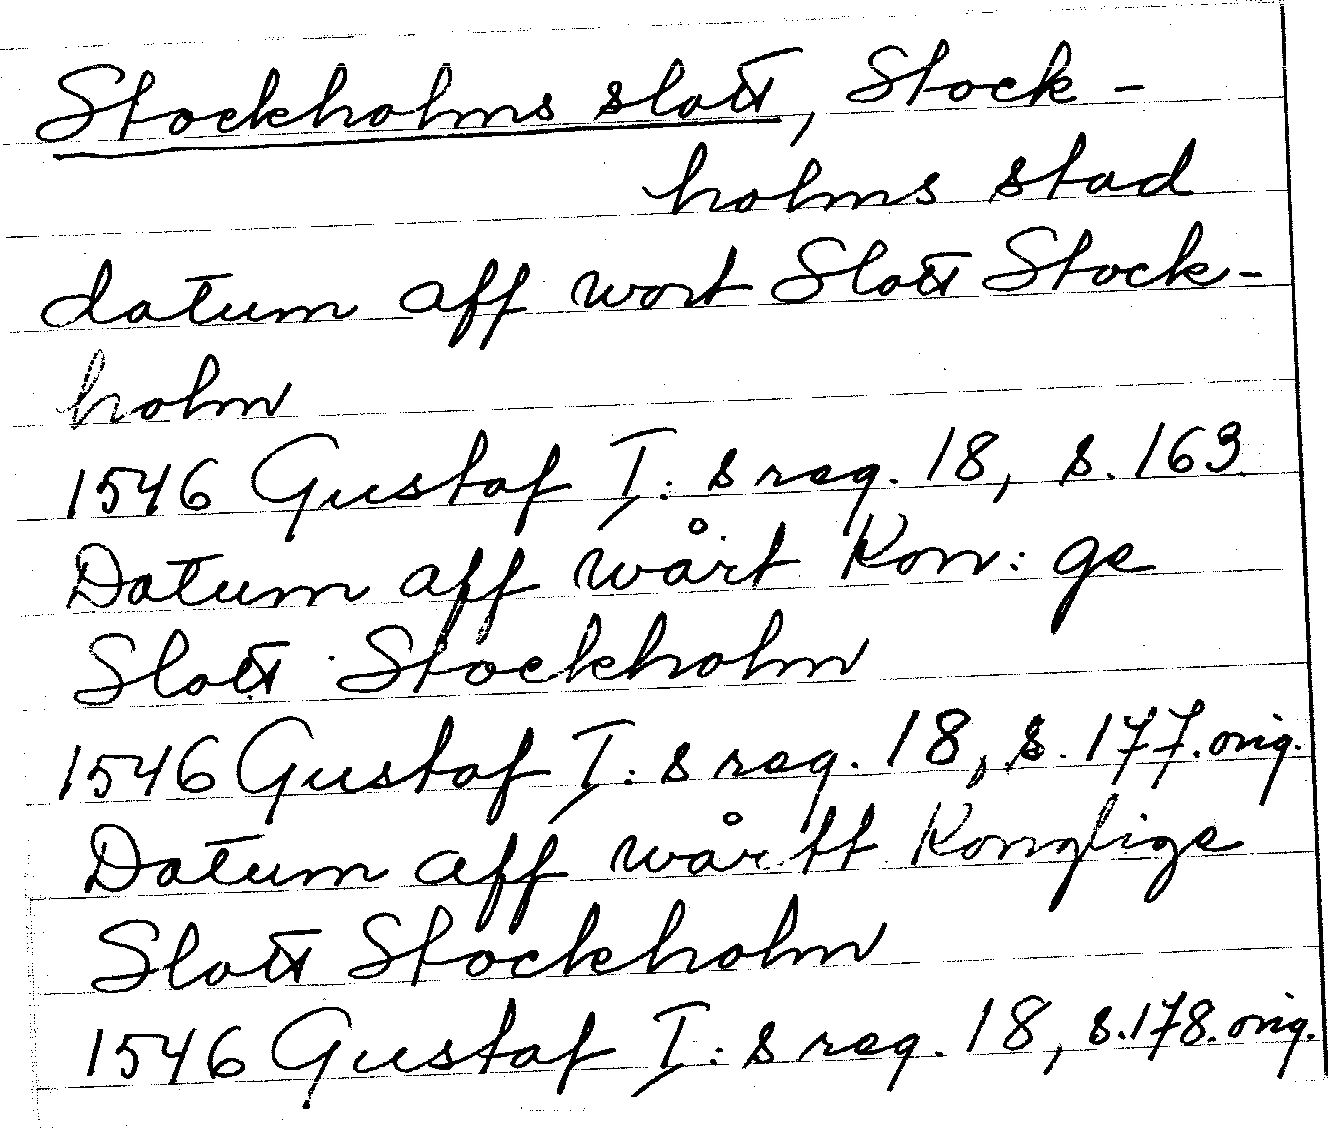 Stockholms slott, Stock-
holms stad
datum aff wort Slott Stock-
holm
1546 Gustaf I: s reg. 18, s. 163
Datum aff wårt Kon: ge
Slott Stockholm
1546 Gustaf I: s reg. 18, s. 177. orig.
Datum aff wårtt Konglige
Slott Stockholm
1546 Gustaf I: s reg. 18, s. 178. orig.